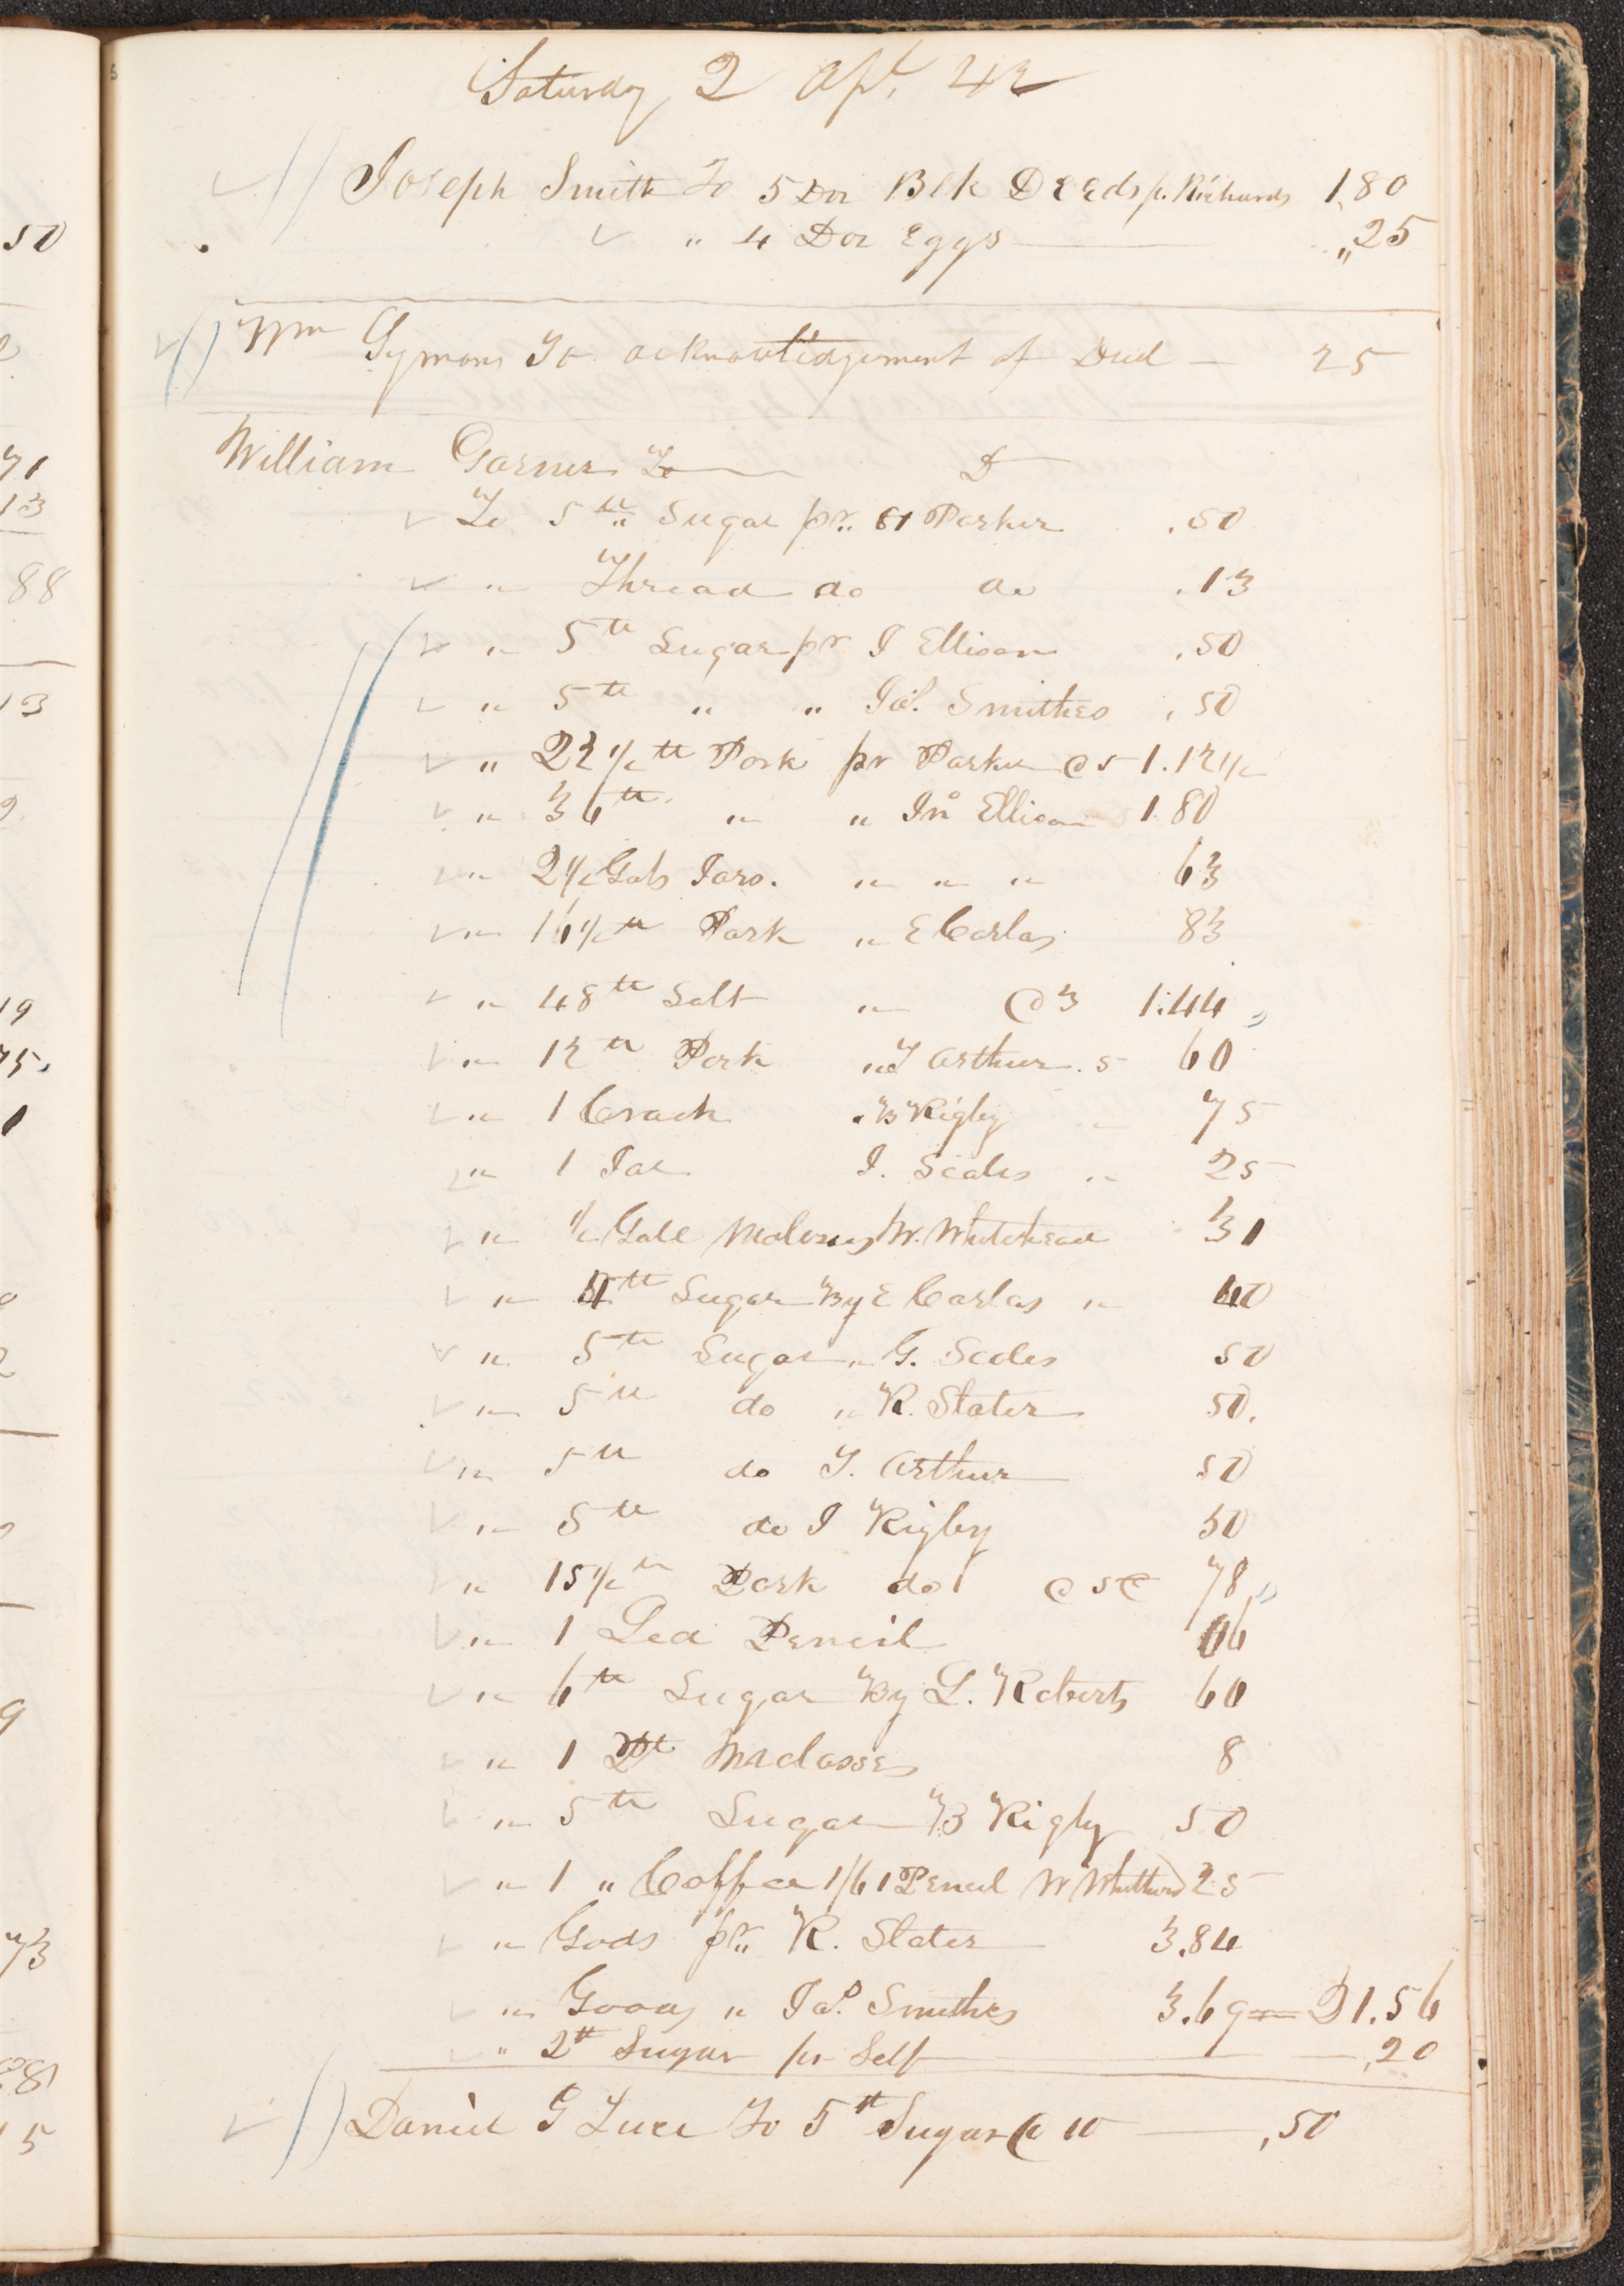 50
2
71
13
88
13
2
19
75.
1
2
9
73
88
15
Saturday 2 Apl. 42
Joseph Smith To 5 Doz Blk Deeds p. Richards 1,80
" 4 Doz Eggs ,,25
Wm Gymons To acknowledgement of Deed 25
William Garner To D
To 5 tt Sugar pr. Parker .50
" Thread do do .13
" 5 tt Sugar pr I Ellison .50
" 5 tt " " Jas. Smithes .50
" 22 1/2 tt Pork pr Parker @ 5 1.12 1/2
" 36 tt " " Jno Ellison 1.80
" 2 1/2 Gals Jars. " " " 63
" 16 1/2 tt Pork " E Corlas 83
" 48 tt Salt " @ 3 1.44
" 12 tt Pork " J Arthur. 5 60
" 1 Crock . B Rigby " 75
" 1 Jar I. Scales " 25
" 1/2 Gall Molasses W. Whitehead 31
" 4 tt Sugar By E Corlas " 40
" 5 tt Sugar " G. Scales 50
" 5 tt do " R. Slater 50.
" 5 tt do J. Arthur 50
" 5 tt do I Rigby 50
" 15 1/2 tt Pork do @ 5c 78
" 1 Led Pencil 06
" 6 tt Sugar By L. Roberts 60
" 1 Pt Molasses 8
" 5 tt Sugar B Rigby 50
" 1 " Coffee 1/6 1 Pencil W Whithead 25
" Gods pr. R. Slater 3.84
" Goods " Jas. Smithes 3.69 = 21.56
" 2 tt Sugar pr Self ,20
Daniel G Luce To 5 tt Sugar @ 10 ,50